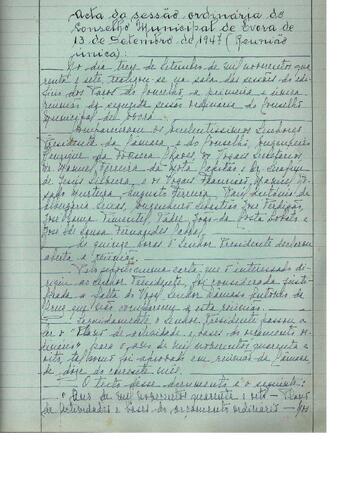 Acta da sessão ordinária do
Conselho Municipal de Evora de
13 de Setembro de 1947 (Reunião
única).
No dia treze de Setembro de mil novecentos qua-
renta e sete, realizou-se na sala das sessões do edi-
fício dos Paços do Concelho a primeira e única
reunião da segunda sessão ordinária do Conselho
Municipal de Evora.
Compareceram os Excelentissimos Senhores
Presidente da Camara e do Conselho, Engenheiro
Henrique da Fonseca Chaves, os Vogais Secretarios
Manuel Ferreira da Mota Capitão e Dr. Serafim
de Jesus Silveira e os Vogais
Augusto Ferreira António de
Engenheiro Sebastião José Perdigão,
José Gama Pimentel, Padre João da Costa
José de Sousa Fernandes
Às quinze horas o Senhor Presidente declarou
aberta a reunião.
Vista uma carta que o interessado di-
rigiu ao Senhor Presidente, foi considerada justi-
ficada a falta do Vogal Senhor António de
que não compareceu a esta reunião.
Seguidamente o Senhor Presidente passou a
ler o "Plano de actividade e bases do orçamento or-
dinário" para o ano de mil novecentos quarenta e
oito, tal como foi aprovado em reunião da Câmara
de doze do corrente mês.
O texto desse documento é o seguinte:
"Ano de mil novecentos quarenta e oito - Plano
de actividades e bases do orçamento ordinário -